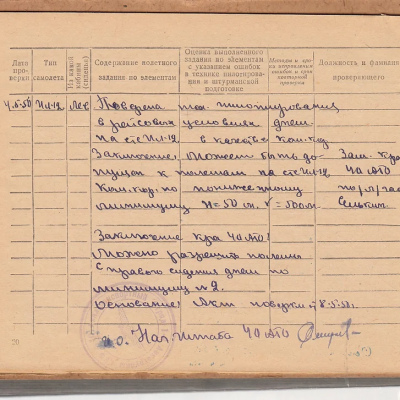 Дата проверки
Тип самолета
Из какой кабины (сиденья)
Содержание полетного задания по элементам
Оценка выполненного задания по элементам с указанием ошибок в технике пилотирования и штурманской подготовке
Методы и сроки исправления ошибок и срок повторной проверки
Должность и фамилия проверяющего
4.5.58 Ил-12 Лев Проверена тех. пилотирования
в рейсовых условиях днем
на с-те Ил-12 в качестве ком. кор.
Заключение: Может быть до- Зам. к-ра
пущен к полетам на с-те Ил-12 40 АТО
Ком. кор. по пониженному
минимуму Н=50 м. V=500 м.
Заключение к-ра 40 АТО:
Можно разрешить полеты
с правого сидения днем по
минимуму №2.
Основание: Акт поверки от 8.5.58г.
И.О. Нач. штаба 40 АТО
20